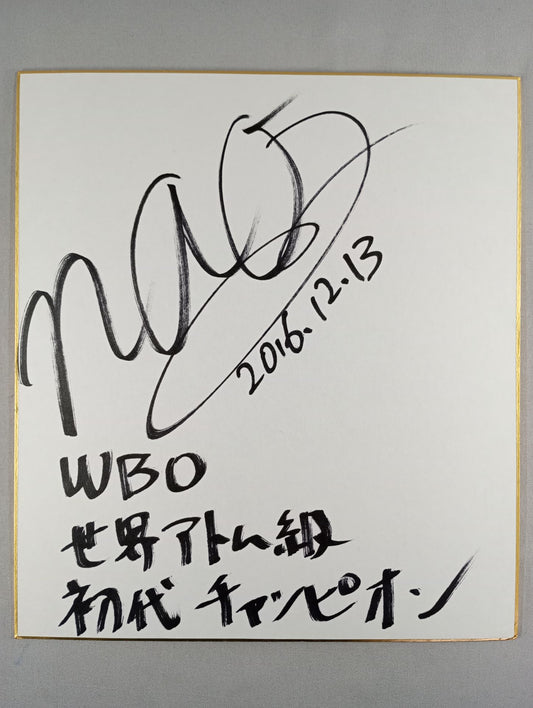 nao
2016.12.13
WBO
世界アトム級
初代 チャンピオン